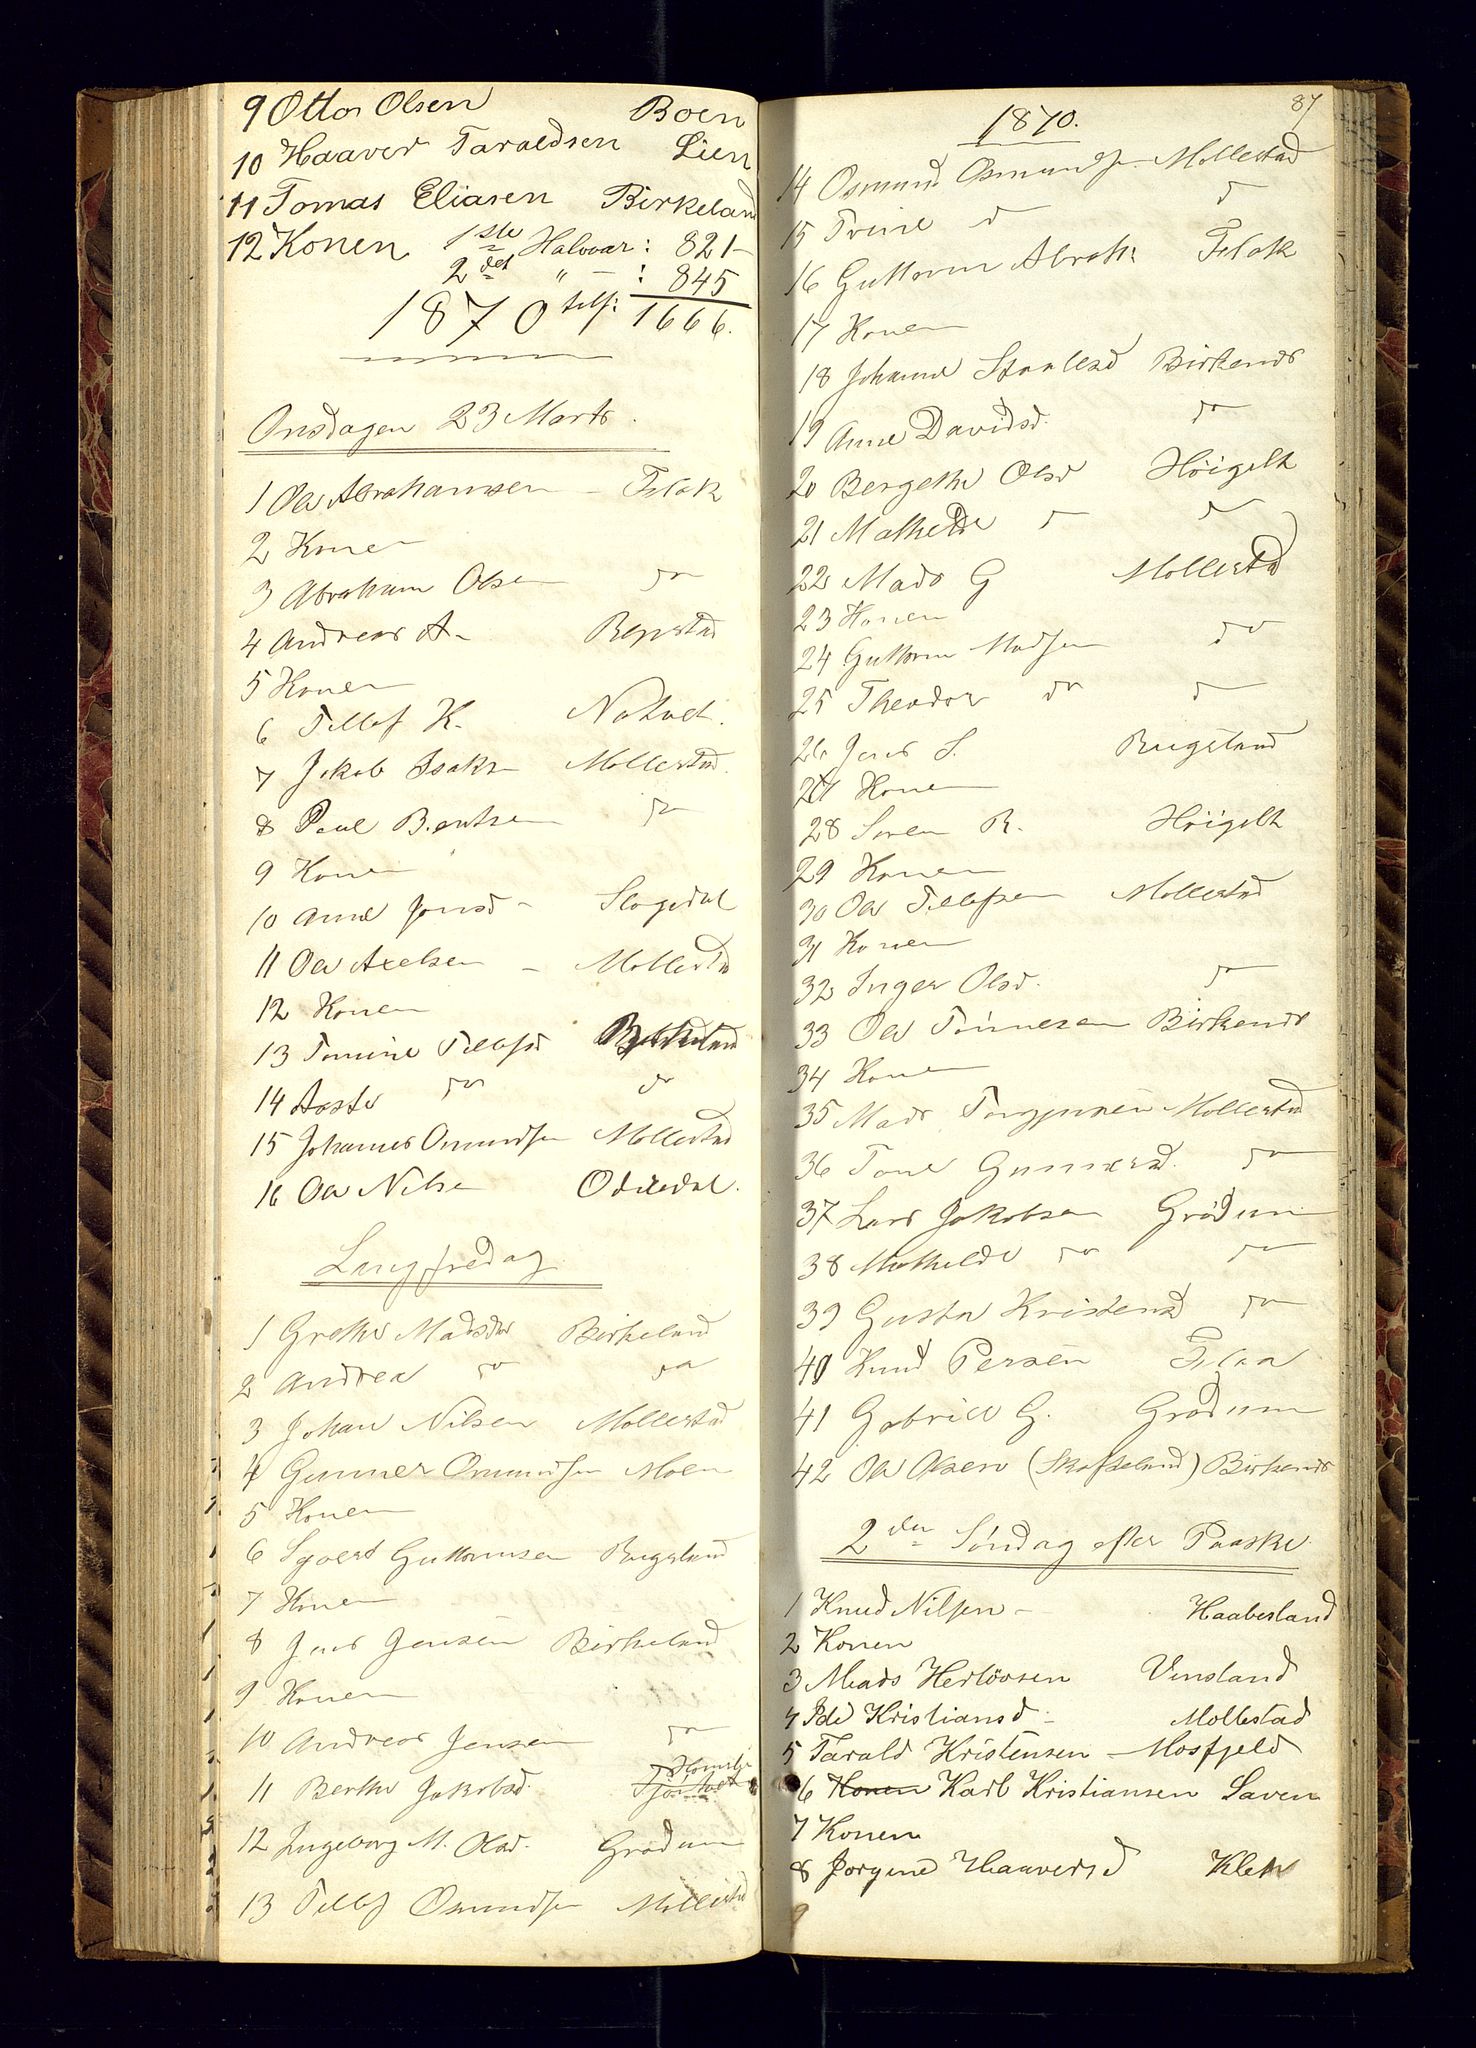 9 Otto Olsen Boen
10 Haaver Taraldsen Lien
11 Tomas Eliasen Birkeland
12 Konen 1ste Halvaar: 821-
2det " - : 845
1870 tils: 1666.
Onsdagen 23 Marts.
1 Ole Abrahamsen - Flak
2 Konen
3 Abraham Olsen do
4 Andreas A- Repstad
5 Konen
6 Tellef K.
7 Jakob Isaks Mollestad
8 Poul Bentsen do
9 Konen
10 Anne Jonsd - Slogedal
11 Ole Axelsen - Mollestad
12 Konen
13 Tomine Tellefsd
14 Aaste do do
15 Johannes Omundsen Mollestad
16 Ole Nilsen Oddedal.
Langfredag
1 Grethe Madsdtr Birkeland
2 Andrea do do
3 Johan Nilsen Mollestad
4 Gunner Omundsen Moen
5 Konen
6 Syvert Guttormsen Bugeland
7 Konen
8 Jens Jensen Birkeland
9 Konen
10 Andreas Jensen do
11 Berthe Jakobsd.
12 Ingeborg M. Olsd. Grödum
13 Tellef Osmundsen Mollestad
87
1870.
14 Osmund Osmundsen Mollestad
15 Trine d d
16 Guttorm Abrah: Flak
17 Konen
18 Johanne Staalesd Birkenes
19 Anne Davidsd. do
20 Bergethe Olsd Höigelt
21 Mathilde d d
22 Mads G Mollestad
23 Konen
24 Guttorm Madsen do
25 Theodor do d
26 Jens S. Bugeland
27 Konen
28 Soren R. Höigelt
29 Konen
30 Ole Tellefsen Mollestad
31 Konen
32 Inger Olsd. do
33 Ole Tönnesen Birkenes
34 Konen
35 Mads Torjussen Mollestad
36 Tone Gunnersd. do
37 Lars Jakobsen Grödum
38 Mathilde do do
39 Gusta Kristensd do
40 Knud Persen Flaa
41 Gabriel G. Grödum
42 Ole Olsen (Skofteland) Birkenes
2den Söndag efter Paaske
1 Knud Nilsen - Haabesland
2 Konen
3 Mads Herlövsen Vinsland
4 Ide Kristiansd - Mollestad
5 Tarald Kristensen - Mosfjeld
6 Konen Karl Kristiansen Saven
7 Konen
8 Jorgine Haaversd Klev
9